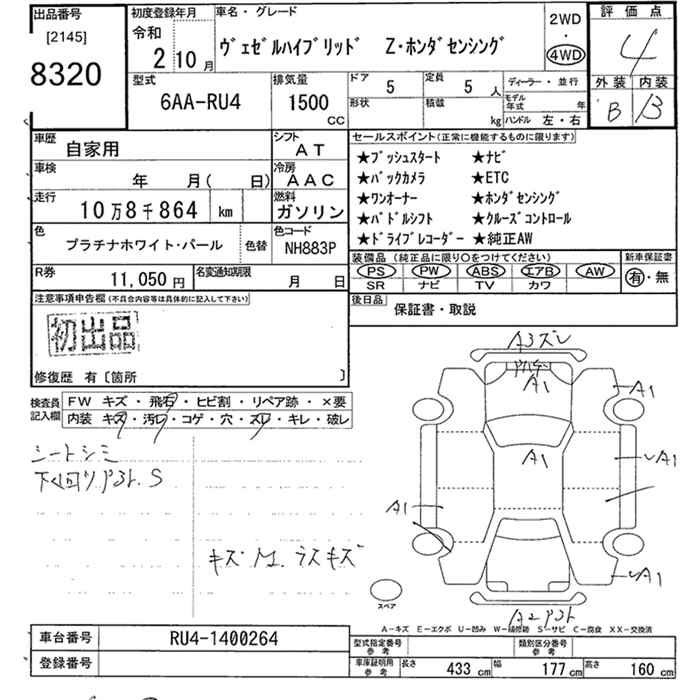 出品番号 初度登録年月 車名・グレード 2WD 評価点
[2145] 令和 ・ 4
8320 2年 10月 ヴェゼルハイブリッド Z・ホンダセンシング 4WD 外装 内装
B B
型式 排気量 ドア 5 定員 5人 ディーラー・並行
6AA-RU4 1500CC 形状 積載 kg モデル年式 年 ハンドル 左・右
車歴 自家用 シフト AT セールスポイント(正常に機能するものに限ります)
車検 年 月( 日) 冷房 AAC
走行 10万8千864 km 燃料 ガソリン
★プッシュスタート ★ナビ
★バックカメラ ★ETC
★ワンオーナー ★ホンダセンシング
★パドルシフト ★クルーズコントロール
★ドライブレコーダー ★純正AW
色 プラチナホワイト・パール 色替 色コード NH883P
装備品(純正品に限り○をつけてください) 新車保証書
PS PW ABS エアB AW 有・無
SR ナビ TV カワ
R券 11,050円 名変通知期限 月 日
後日品 保証書・取説
注意事項申告欄(不具合内容等は具体的に記入して下さい)
初出品
修復歴 有〔箇所 〕
検査員記入欄 FW キズ・飛石・ヒビ割・リペア跡・×要
内装 キズ・汚レ・コゲ・穴・スレ・キレ・破レ
シートシミ
下回りサビ.S
キズ M. ラスキズ
A3ズレ
A1
A1
A1
A1
A1
A1
スペア
A-キズ E-エクボ U-凹み W-補修跡 S-サビ C-腐食 XX-交換済
車台番号 RU4-1400264 型式指定番号 参考 類別区分番号 参考
登録番号 車庫証明用 参考 長さ 433cm 幅 177cm 高さ 160cm